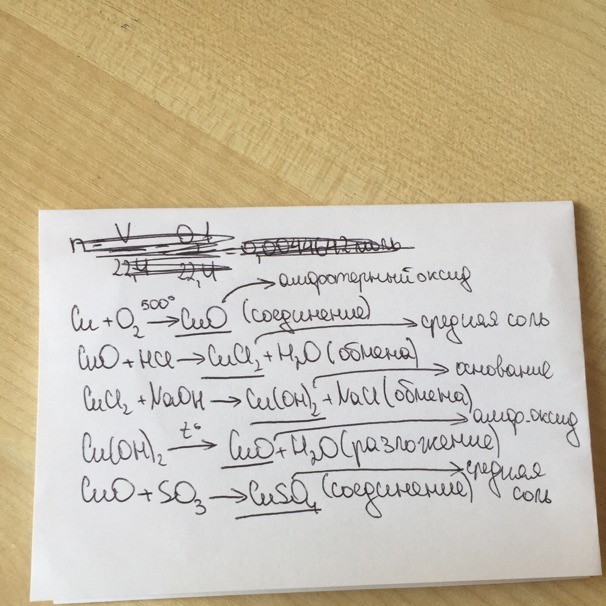 n V 0,1 0,0044642 моль
22,4 22,4
амфотерный оксид
Cu + O₂ 500° → CuO (соединение)
средняя соль
CuO + HCl → CuCl₂ + H₂O (обмена)
основание
CuCl₂ + NaOH → Cu(OH)₂ + NaCl (обмена)
амф. оксид
Cu(OH)₂ t° → CuO + H₂O (разложение)
средняя
CuO + SO₃ → CuSO₄ (соединение)
соль